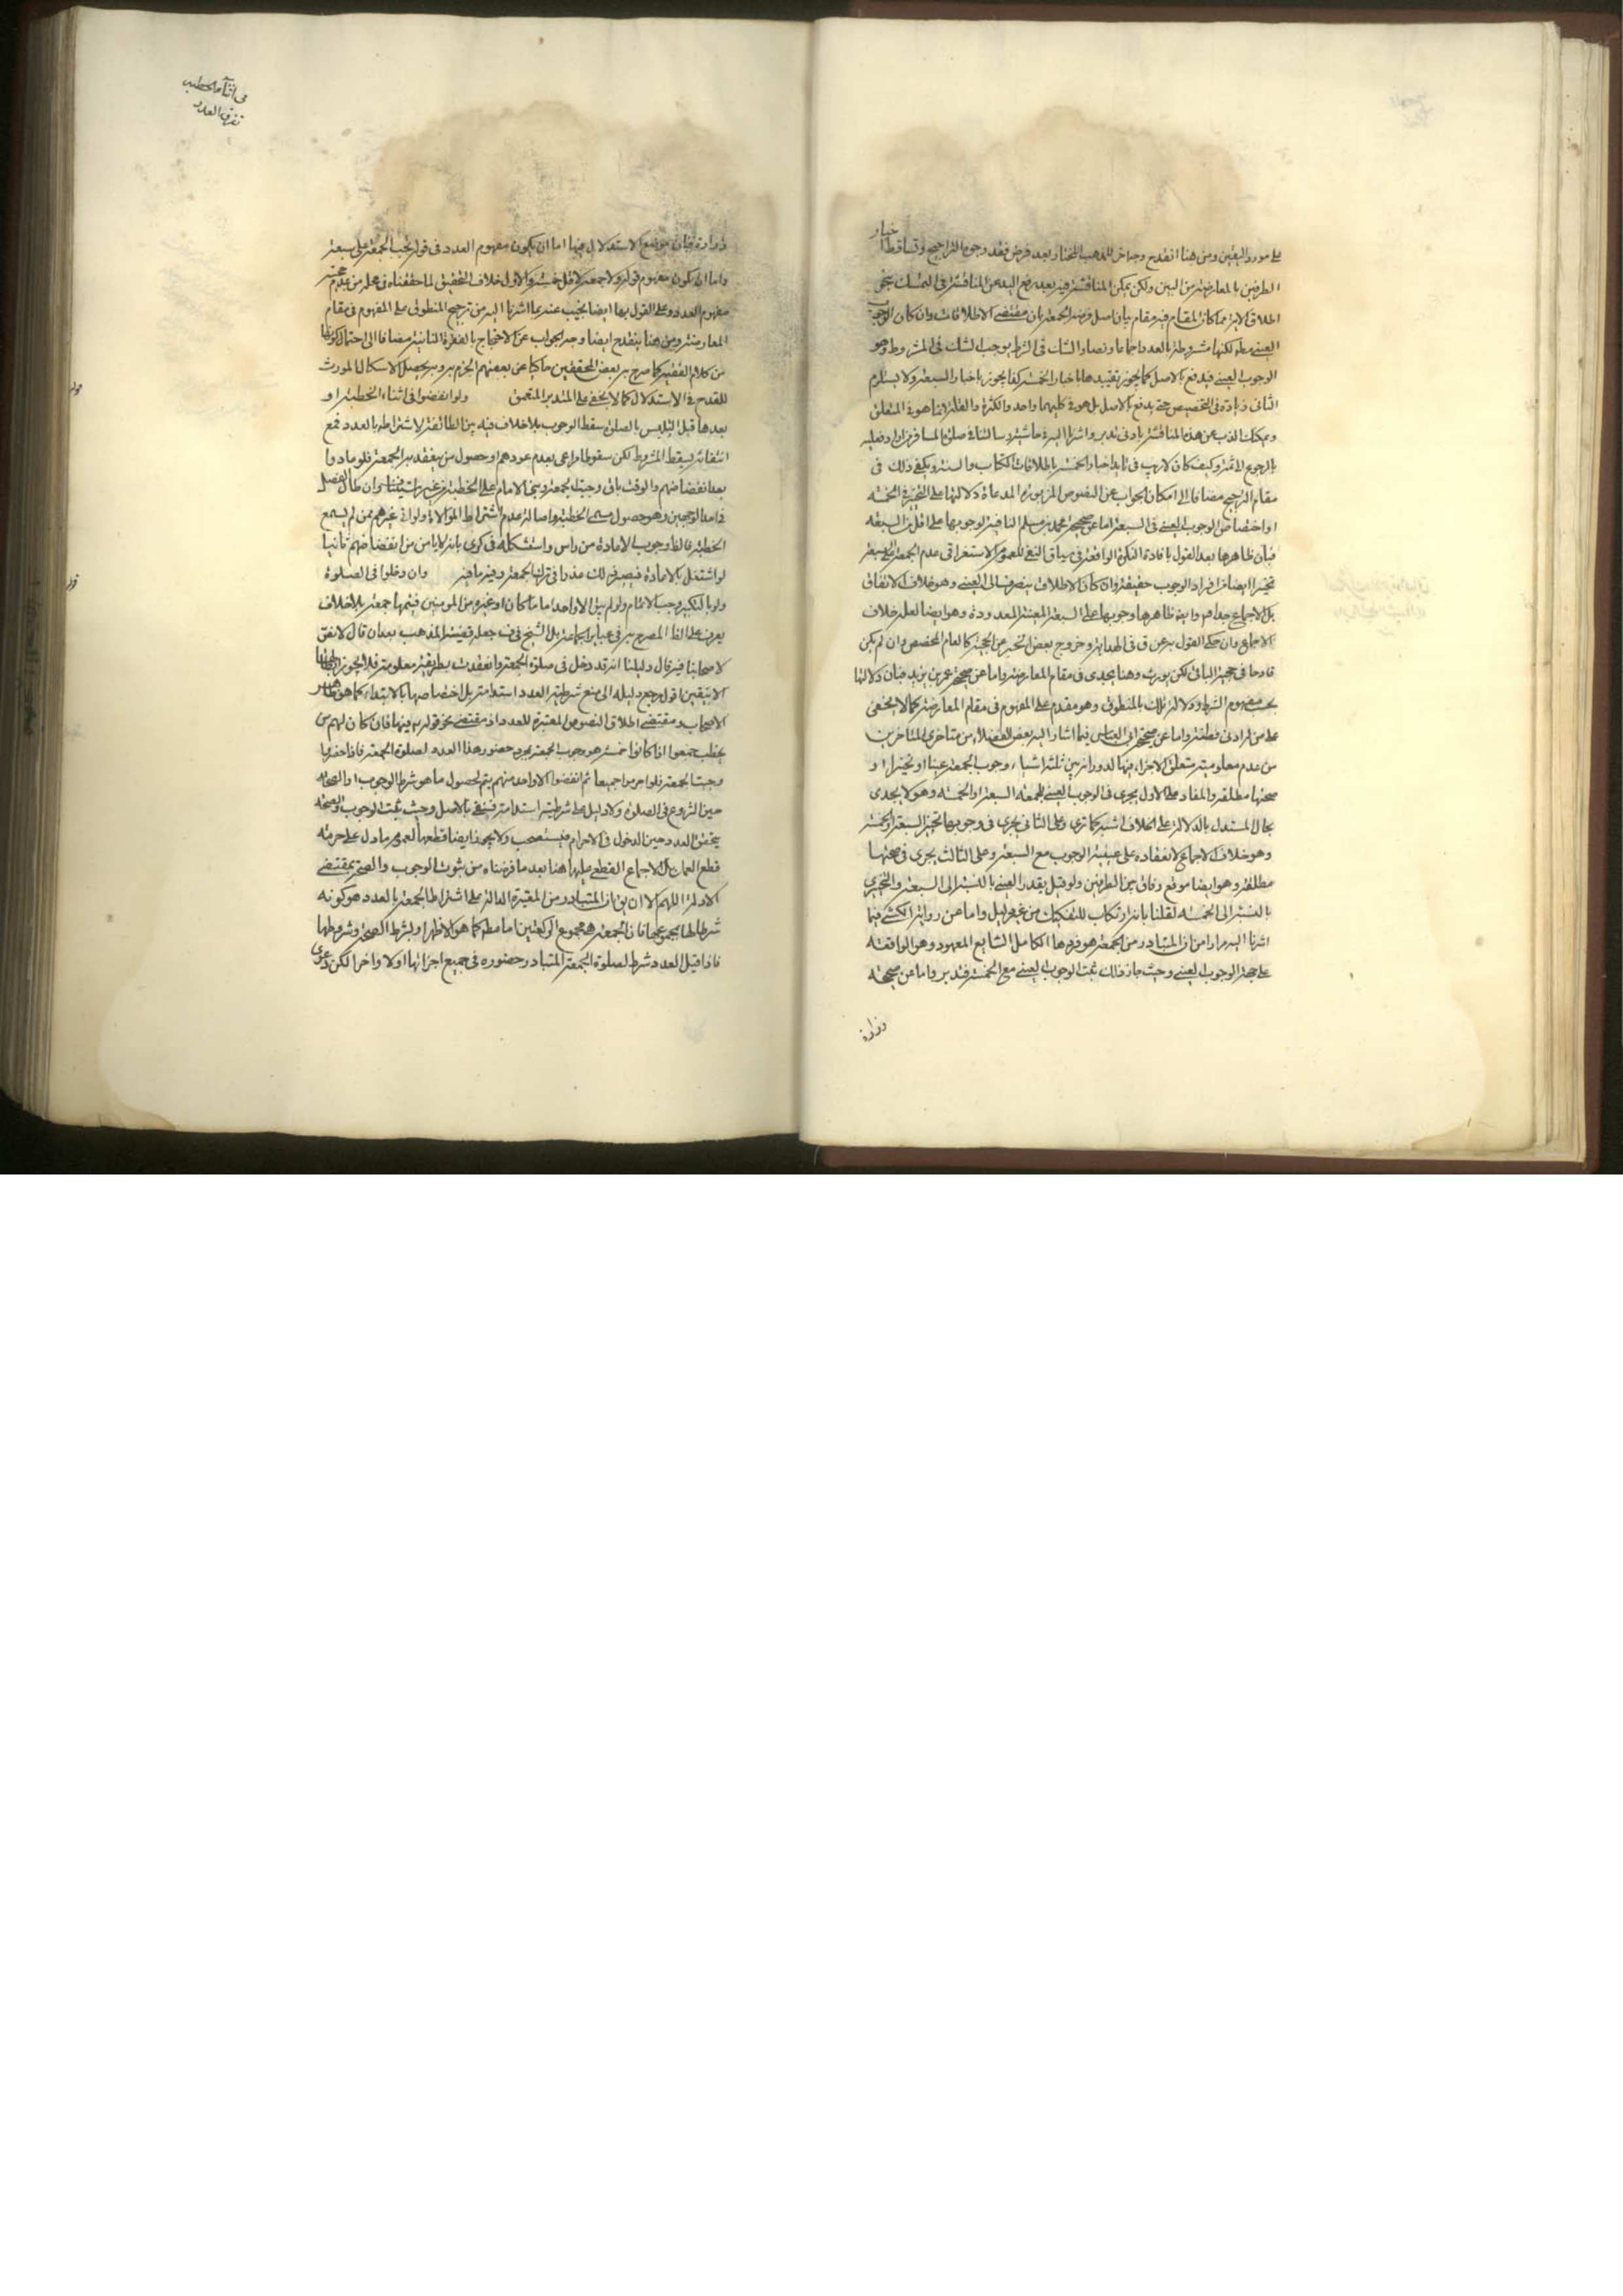 على مورد اليقين ومن هنا انقدح وجه اخر للمذهب المختار بعد فرض فقد وجوه التراجيح وتساقط اخبار
الطرفين بالمعارضة من البين ولكن يمكن المناقشة فيه بعد رفع اليد عن المناقشة في التمسك بنحو
اطلاق الاية مما كان المقام فيه مقام بيان اصل فرض الجمعة بان مقتضى الاطلاقات وان كان الوجوب
العيني مطلقا لكنها مشروطة بالعدد اجماعا ونصا والشك في الشرط يوجب الشك في المشروط وهو
الوجوب العيني فيدفع بالاصل كما يجوز تقييدها باخبار الخمسة كذا يجوز باخبار السبعة ولا يستلزم
الثاني زيادة في التخصيص حتى يدفع بالاصل بل هو في كليهما واحد والكثرة والقلة انما هو في المتعلق
ويمكنك الذب عن هذه المناقشة بادنى تدبر واشرنا اليه في حاشية رسالتنا في صلوة المسافر فراد فعليه
بالرجوع اليها ثمة وكيف كان لا ريب في تايد اخبار الخمسة باطلاقات الكتاب والسنة ويكفي ذلك في
مقام الترجيح مضافا الى امكان الجواب عن النصوص المزبورة المدعاة دلالتها على التخيير في الخمسة
او اختصاص الوجوب العيني في السبعة اما عن صحيحة محمد بن مسلم النافية لوجوبها على اقل من السبعة
فبان ظاهرها بعد القول بافادة النكرة الواقعة في سياق النفي للعموم الاستغراقي عدم الجمعة على السبعة
تخييرا ايضا فان افراد الوجوب حقيقة وان كان الاطلاق ينصرف الى العيني وهو خلاف الاتفاق
بل الاجماع جدا هم وايضا ظاهرها وجوبها على السبعة المعينة المعدودة وهو ايضا لعله خلاف
الاجماع وان حكي القول به عن ق في الهداية وخروج بعض الخبر عن الحجية كالعام المخصص وان لم يكن
قادحا في حجية الباقي لكن يورث وهنا يجدى في مقام المعارضة واما عن صحيحة عمر بن يزيد فبان دلالتها
بحسب مفهوم الشرط ودلالة تلك بالمنطوق وهو مقدم على المفهوم في مقام المعارضة كما لا يخفى
على من له ادنى فطنة واما عن صحيحة ابي العباس فبما اشار اليه بعض الفضلاء من متاخري المتاخرين
من عدم معلومية متعلق الاجزاء فيها لدورانه بين ثلثة اشياء وجوب الجمعة عينا او تخييرا او
صحتها مطلقة والمفاد على الاول يجزى في الوجوب العيني للجمعة السبعة او الخمسة وهو لا يجدى
بحال المستدل بالدلالة على الخلاف اشبه كما ترى وعلى الثاني يجزى في وجوبها تخييرا السبعة او الخمسة
وهو خلاف الاجماع لانعقاده على عينية الوجوب مع السبعة وعلى الثالث يجزى في صحتها
مطلقة وهو ايضا موضع وفاق بين الطرفين ولو قيل بقدر العيني بالنسبة الى السبعة والتخييري
بالنسبة الى الخمسة لقلنا بانه ارتكاب للتفكيك من غير دليل واما عن رواية الكشي فبما
اشرنا اليه مرارا من ان المتبادر من الجمعة هو فردها الكامل الشايع المعهود وهو الواقعة
على جهة الوجوب العيني وحيث جاز ذلك ثبت الوجوب العيني مع الخمسة فتدبر واما عن صحيحة
زرارة
في اثناء الخطبة
تفرق العدد
زرارة فبان موضع الاستدلال فيها اما ان يكون مفهوم العدد في قوله تجب الجمعة على سبعة
واما ان يكون مفهوم قوله ولا جمعة لاقل خمسة والاول خلاف التحقيق لما حققناه في محله من عدم حجية
مفهوم العدد وعلى القول بها ايضا يجيب عنه بما اشرنا اليه من ترجيح المنطوق على المفهوم في مقام
المعارضة ومن هنا ينقدح ايضا وجه الجواب عن الاحتجاج بالفقرة الثانية مضافا الى احتمال كونها
من كلام الفقيه كما صرح به بعض المحققين حاكيا عن بعضهم الجزم به وبه يحصل الاسكال المورث
للقدح في الاستدلال كما لا يخفى على المتدبر المتعمق ولو انفضوا في اثناء الخطبة او
بعدها قبل التلبس بالصلوة سقط الوجوب بلا خلاف فيه بين الطائفة لاشتراطه بالعدد فمع
انتفائه يسقط المشروط لكن سقوطا مراعى بعدم عودهم او حصول من ينعقد به الجمعة فلو عادوا
بعد انفضاضهم والوقت باق وجبت الجمعة وبنى الامام على الخطبة من غير استيناف وان طال الفصل
في احد الوجهين وهو حصول مسمى الخطبة واصالة عدم اشتراط الموالاة ولو اتى غيرهم ممن لم يسمع
الخطبة فالظ وجوب الاعادة من راس واستشكله في كرى بانه لا يامن من انفضاضهم ثانيا
لو اشتغل بالاعادة فيصير ذلك عذرا في ترك الجمعة وفيه ما فيه وان دخلوا في الصلوة
ولو بالتكبير وجب الاتمام ولو لم يبق الا واحد اماما كان او غيره من المومنين فيتمها جمعة بلا خلاف
يعرف على الظ المصرح به في عبائر جماعة بل الشيخ في ف جعله قضية المذهب بعد ان قال لا نص
لاصحابنا فيه قال دليلنا انه قد دخل في صلوة الجمعة وانعقدت بطريقة معلومة فلا يجوز ابطالها
الا بيقين اقول مرجع دليله الى منع شرطية العدد استدامة بل اختصاصها بالابتداء كما هو ظاهر
الاصحاب ومقتضى اطلاق النصوص المعتبرة للعدد اذ مقتضى نحو قوله ع فيها فان كان لهم من
يخطب جمعوا اذا كانوا خمسة هو وجوب الجمعة بمجرد حضور هذا العدد لصلوة الجمعة فاذا حضروا
وجبت الجمعة فلو احرموا جميعا ثم انفضوا الا واحد منهم يتم لحصول ما هو شرط الوجوب او الصحة
حين الشروع في الصلوة ولا دليل على شرطيته استدامة فينفى بالاصل وحيث ثبت الوجوب والصحة
بتحقق العدد حين الدخول في الاحرام فيستصحب ولا يجوز ايضا قطعها لعموم ما دل على حرمة
قطع العمل بل الاجماع القطعي عليها هنا بعد ما فرضناه من ثبوت الوجوب والصحة بمقتضى
الادلة اللهم الا ان يق ان المتبادر من المعتبرة الدالة على اشتراط الجمعة بالعدد هو كونه
شرطا لها بمجموعها فان الجمعة هي مجموع الركعتين اما مطلقا كما هو الاظهر او بشرط الصحة وشروطها
فاذا قيل العدد شرط لصلوة الجمعة المتبادر حضوره في جميع اجزائها اولا واخرا لكن دعوى